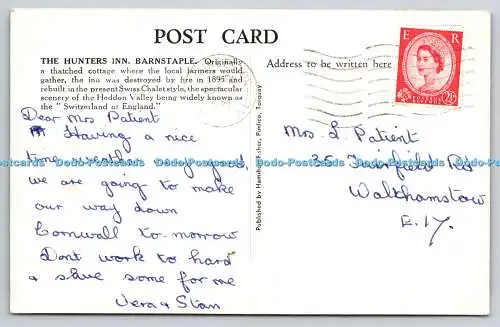 POST CARD
THE HUNTERS INN, BARNSTAPLE. Originally
a thatched cottage where the local farmers would
gather, the inn was destroyed by fire in 1895 and
rebuilt in the present Swiss Chalet style, the spectacular
scenery of the Heddon Valley being widely known as
the "Switzerland of England."
Dear Mrs Patient
Having a nice
time weather good,
we are going to make
our way down
Cornwall to-morrow
Dont work to hard
& save some for me
Vera & Stan
Published by Harvey Barton, Torquay
Address to be written here
E R
POSTAGE REVENUE
2½D
Mrs. L. Patient
35 Fairfield Rd
Walthamstow
E.17.
Dodo-Postcards Dodo-Postcards Dodo-Postcards Dodo-Postcards